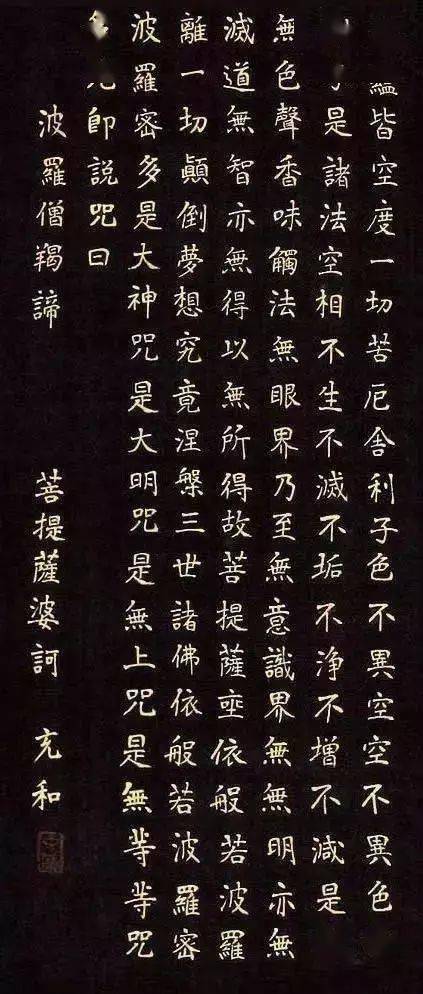 蘊皆空度一切苦厄舍利子色不異空空不異色
是諸法空相不生不滅不垢不淨不增不減是
無色聲香味觸法無眼界乃至無意識界無無明亦無
滅道無智亦無得以無所得故菩提薩埵依般若波羅
離一切顛倒夢想究竟涅槃三世諸佛依般若波羅密
波羅密多是大神咒是大明咒是無上咒是無等等咒
即說咒曰
波羅僧羯諦 菩提薩婆訶 充和